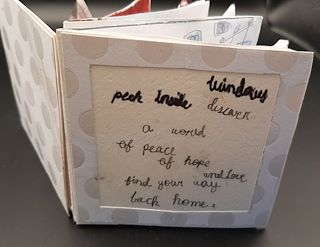 peek inside windows
discover
a world
of peace
of hope
and love
find your way
back home.